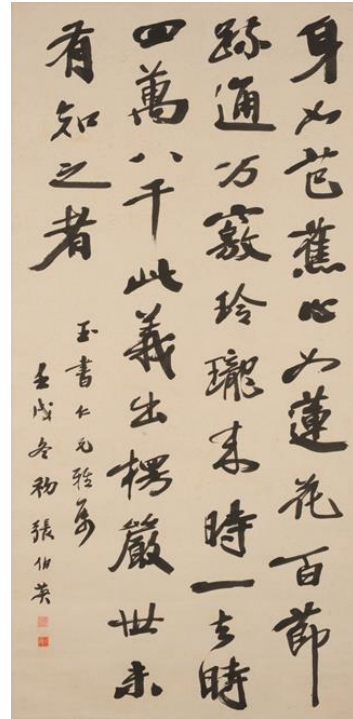 身如芭蕉心如蓮花百節
疏通万竅玲瓏来時一去時
四萬八千此義出楞嚴世未
有知之者
玉書仁兄雅屬
壬戌冬初張伯英